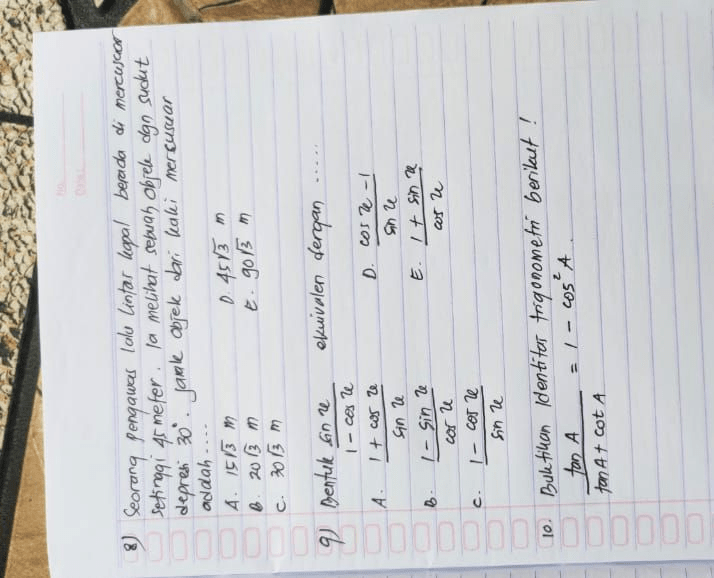 No.
Date:
8) Seorang pengawas lalu lintas kapal berada di mercusuar
setinggi 45 meter. Ia melihat sebuah objek dgn sudut
depresi 30°. Jarak objek dari kaki mersusuar
adalah ....
A. 15√3 m D. 45√3 m
B. 20√3 m E. 90√3 m
C. 30√3 m
9) Bentuk sin x / 1 - cos x ekuivalen dengan .....
A. 1 + cos x / sin x D. cos x - 1 / sin x
B. 1 - sin x / cos x E. 1 + sin x / cos x
C. 1 - cos x / sin x
10. Buktikan Identitas trigonometri berikut !
tan A / tan A + cot A = 1 - cos² A.